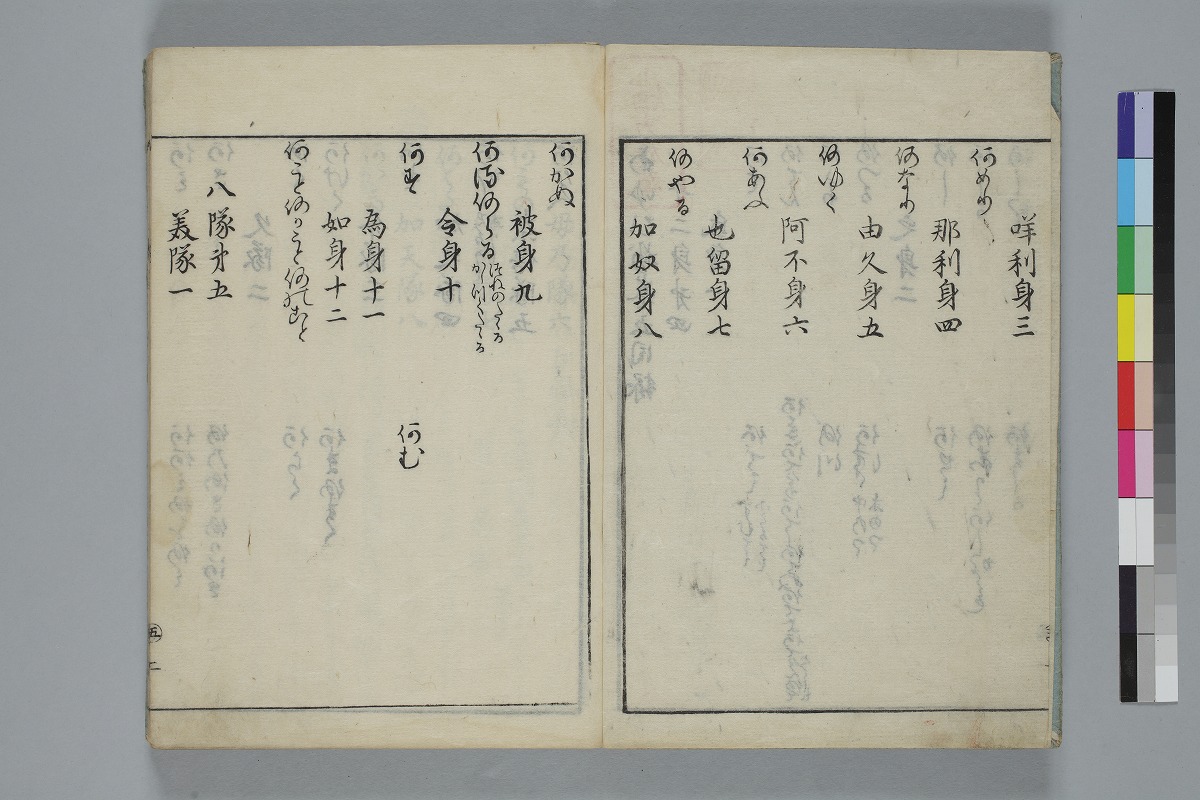 咩利身三
何めり
那利身四
何なり
由久身五
何ゆく
阿不身六
何あふ
也留身七
何やる
加奴身八
何かぬ
被身九
何る何らる
令身十
何す 何む
為身十一
如身十二
八隊身五
美隊一
五 二